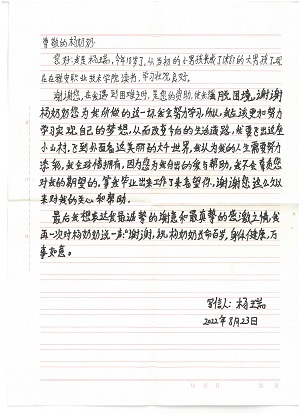 尊敬的杨奶奶:
您好!我是杨瑞,今年18岁了,从当初的小男孩长成了现在的大男孩了,现
在在雅安职业技术学院读书,学习状况良好。
谢谢您,在我遇到困难之时,是您的资助,使我摆脱困境,谢谢
杨奶奶您为我所做的这一切,我会努力学习,所以,我应该更加努力
学习实现自己的梦想,从而改变自的生活道路,我要飞出这座
小山村,飞到外面看这美丽的大千世界,我认为我的人生需要努力
添秘,我会珍惜拥有,因为您为我付出的爱与帮助,我不会辜负您
对我的期望的,等我毕业出来工作了来看望你,谢谢您这么久以
来对我的关心和帮助。
最后我想表达我最诚挚的谢意和最真挚的感激之情,我
再一次对杨奶奶说一声:谢谢,祝杨奶奶长命百岁,身体健康,万
事如意。
写信人:杨瑞
2022年8月23日
年 月 日